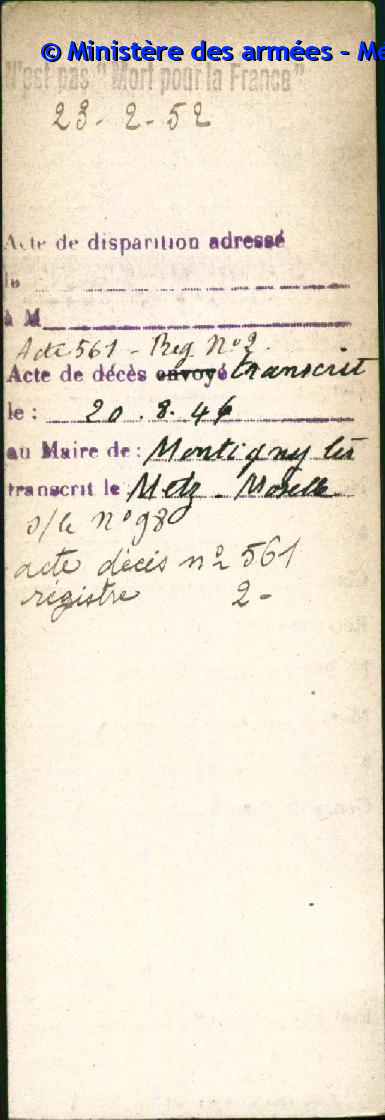 © Ministère des armées - Mé
N'est pas "Mort pour la France"
23 - 2 - 52
Acte de disparition adressé
le
à M
Acte 561 - Reg. N°2.
Acte de décès envoyé transcrit
le : 20. 8. 46
au Maire de : Montigny lès
transcrit le Metz - Moselle
s/le N°98
acte décès n° 561
régistre 2 -